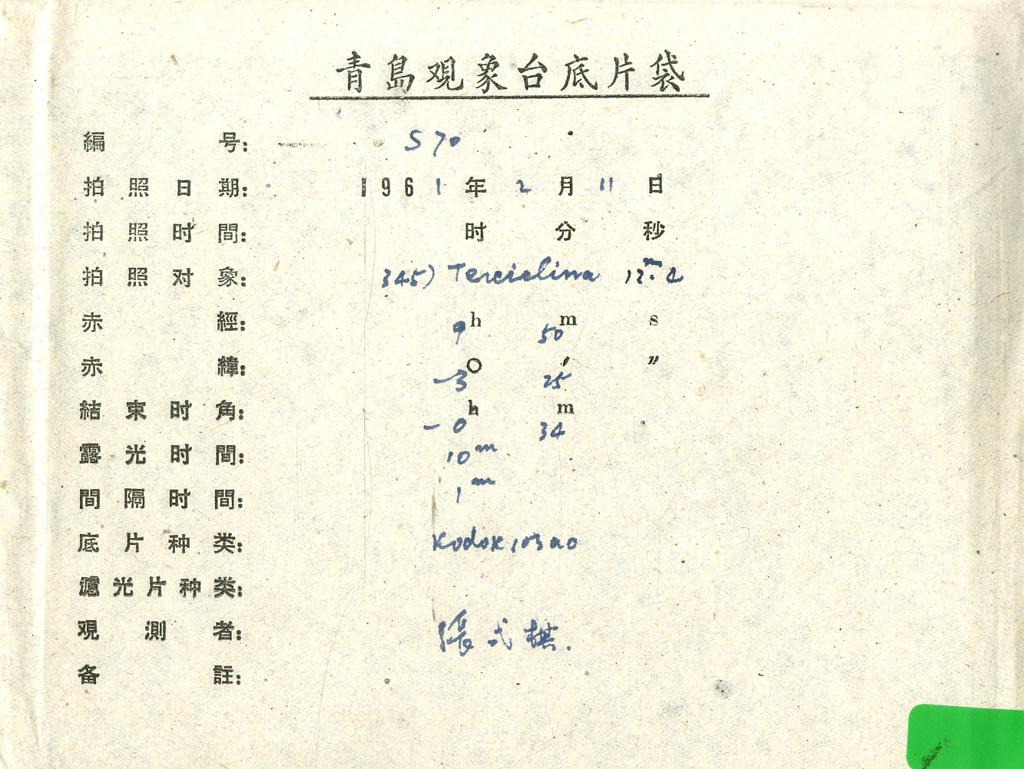 青島观象台底片袋
編号: S 70
拍照日期: 1961年2月11日
拍照时間: 时 分 秒
拍照对象: 345) Tercidina 12.ᵐ4
赤經: 9h 50m s
赤緯: -3° 25′ ″
結束时角: -0h 34m
露光时間: 10m
間隔时間: 1m
底片种类: Kodak 103 a0
濾光片种类:
观測者: 張弍棋.
备註: